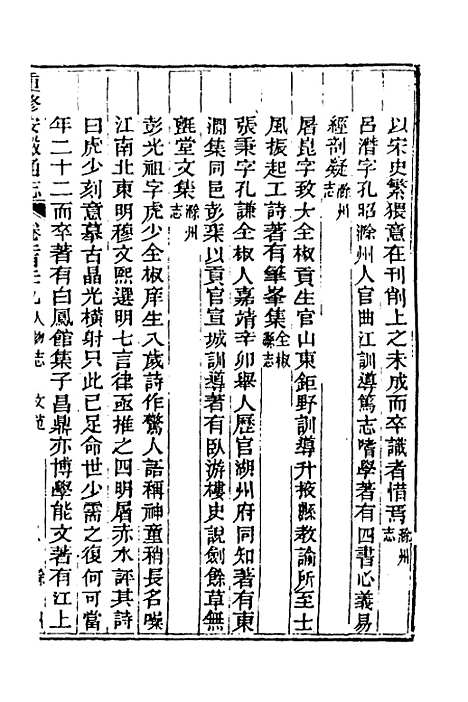 以宋史繁猥意在刊削上之未成而卒識者惜焉滁州志
呂潛字孔昭滁州人官曲江訓導篤志嗜學著有四書心義易
經剖疑滁州志
屠崑字致大全椒貢生官山東鉅野訓導升掖縣敎諭所至士
風振起工詩著有峯集全椒縣志
張秉字孔謙全椒人嘉靖辛卯舉人歷官湖州府同知著有東
澗集同邑彭渠以貢官宣城訓導著有臥游樓史說劍餘草無
甡堂文集滁州志
彭光祖字虎少全椒庠生八歲詩作驚人語稱神童稍長名噪
江南北東明穆文熙選明七言律亟推之四明屠赤水評其詩
曰虎少刻意慕古晶光橫射只此已足命世少需之復何可當
年二十二而卒著有白鳳館集子昌鼎亦博學能文著有江上
重修安徽通志 卷 人物志 文苑